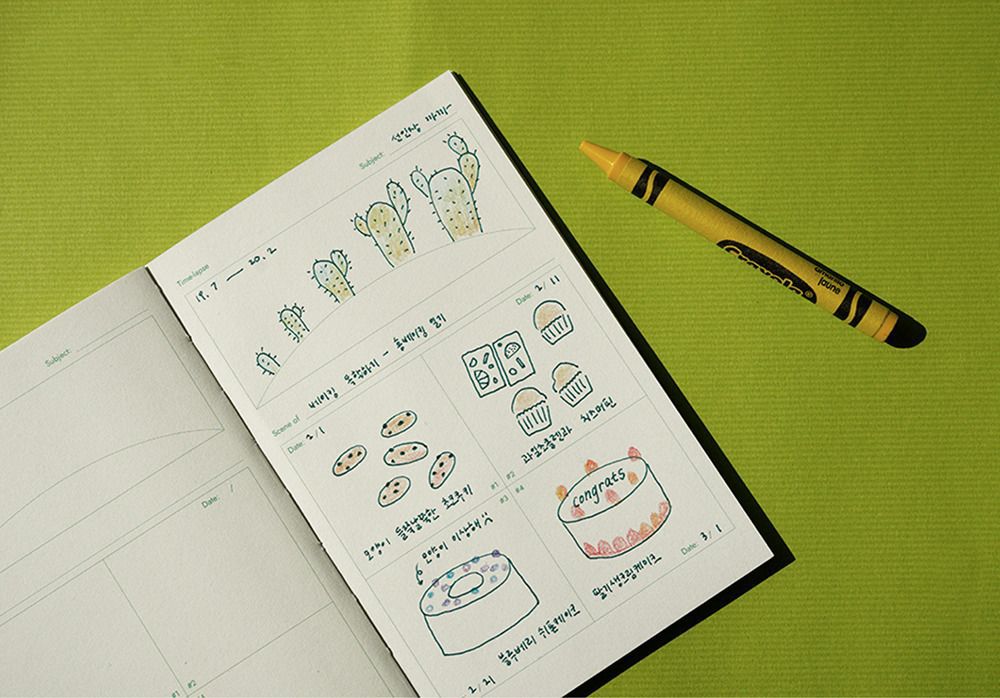 Subject:
Date: /
#1
#2
Subject: 선인장 까까
Time-lapse
19.7 — 20.2
Scene of 베이킹 유학하기 - 홈베이킹 일기
Date: 2/1
Date: 2/11
#1
#2
#3
#4
모양이 들쭉날쭉한 초코쿠키
과일초콜렛과 치즈머핀
모양이 이상해
블루베리 쉬폰케이크
2/21
congrats
딸기생크림케이크
Date: 3/1
Crayola
amarillo
jaune